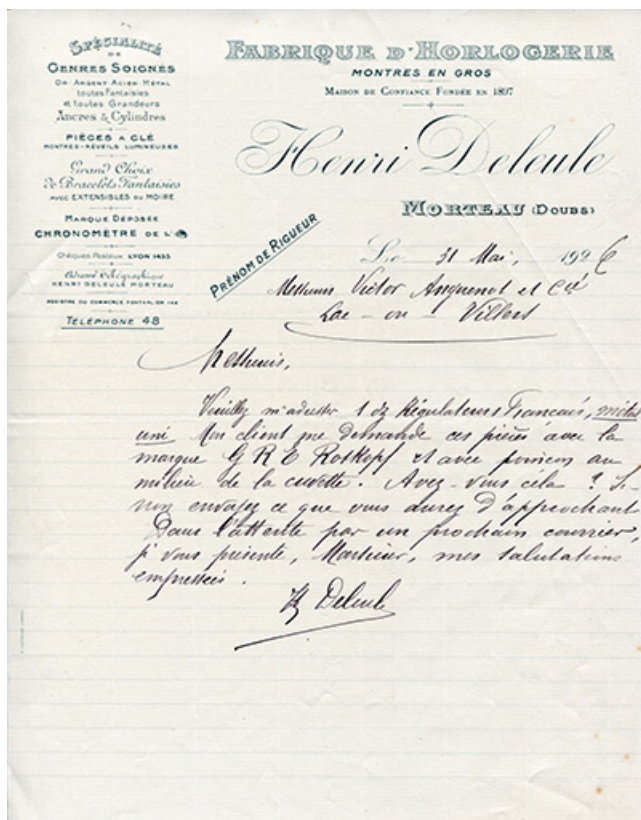 SPÉCIALITÉ
DE
GENRES SOIGNÉS
OR - ARGENT - ACIER - MÉTAL
toutes Fantaisies
et toutes Grandeurs
Ancres & Cylindres
PIÈCES A CLÉ
MONTRES-RÉVEILS LUMINEUSES
Grand Choix
de Bracelets Fantaisies
AVEC EXTENSIBLES OU MOIRE
MARQUE DÉPOSÉE
CHRONOMÈTRE DE L'
Chèques Postaux LYON 1455
Adresse Télégraphique
HENRI DELEULE MORTEAU
REGISTRE DU COMMERCE PONTARLIER
TÉLÉPHONE 48
FABRIQUE D'HORLOGERIE
MONTRES EN GROS
MAISON DE CONFIANCE FONDÉE EN 1897
Henri Deleule
MORTEAU (DOUBS)
PRÉNOM DE RIGUEUR
Le 31 Mai, 1926
Messieurs Victor Anguenot et Cie
Lac - ou - Villers
Messieurs,
Veuillez m'adresser 1 dz Régulateurs Français, métal
uni Mon client me demande ces pièces avec la
marque G R E Roskopf et avec poinçon au
milieu de la cuvette. Avez-vous cela ? Si-
non envoyez ce que vous aurez d'approchant
Dans l'attente par un prochain courrier,
je vous présente, Messieurs, mes salutations
empressées.
H Deleule